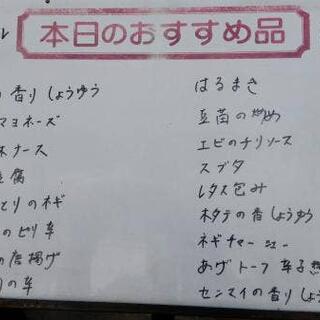 ル
本日のおすすめ品
の香りしょうゆう
マヨネーズ
ナース
豆腐
とりのネギ
のピリ辛
の唐揚げ
の辛
はるまき
豆苗の炒め
エビのチリソース
スブタ
レタス包み
ホタテの香しょうゆう
ネギチャーシュー
あげトーフ辛子
センマイの香りしょう